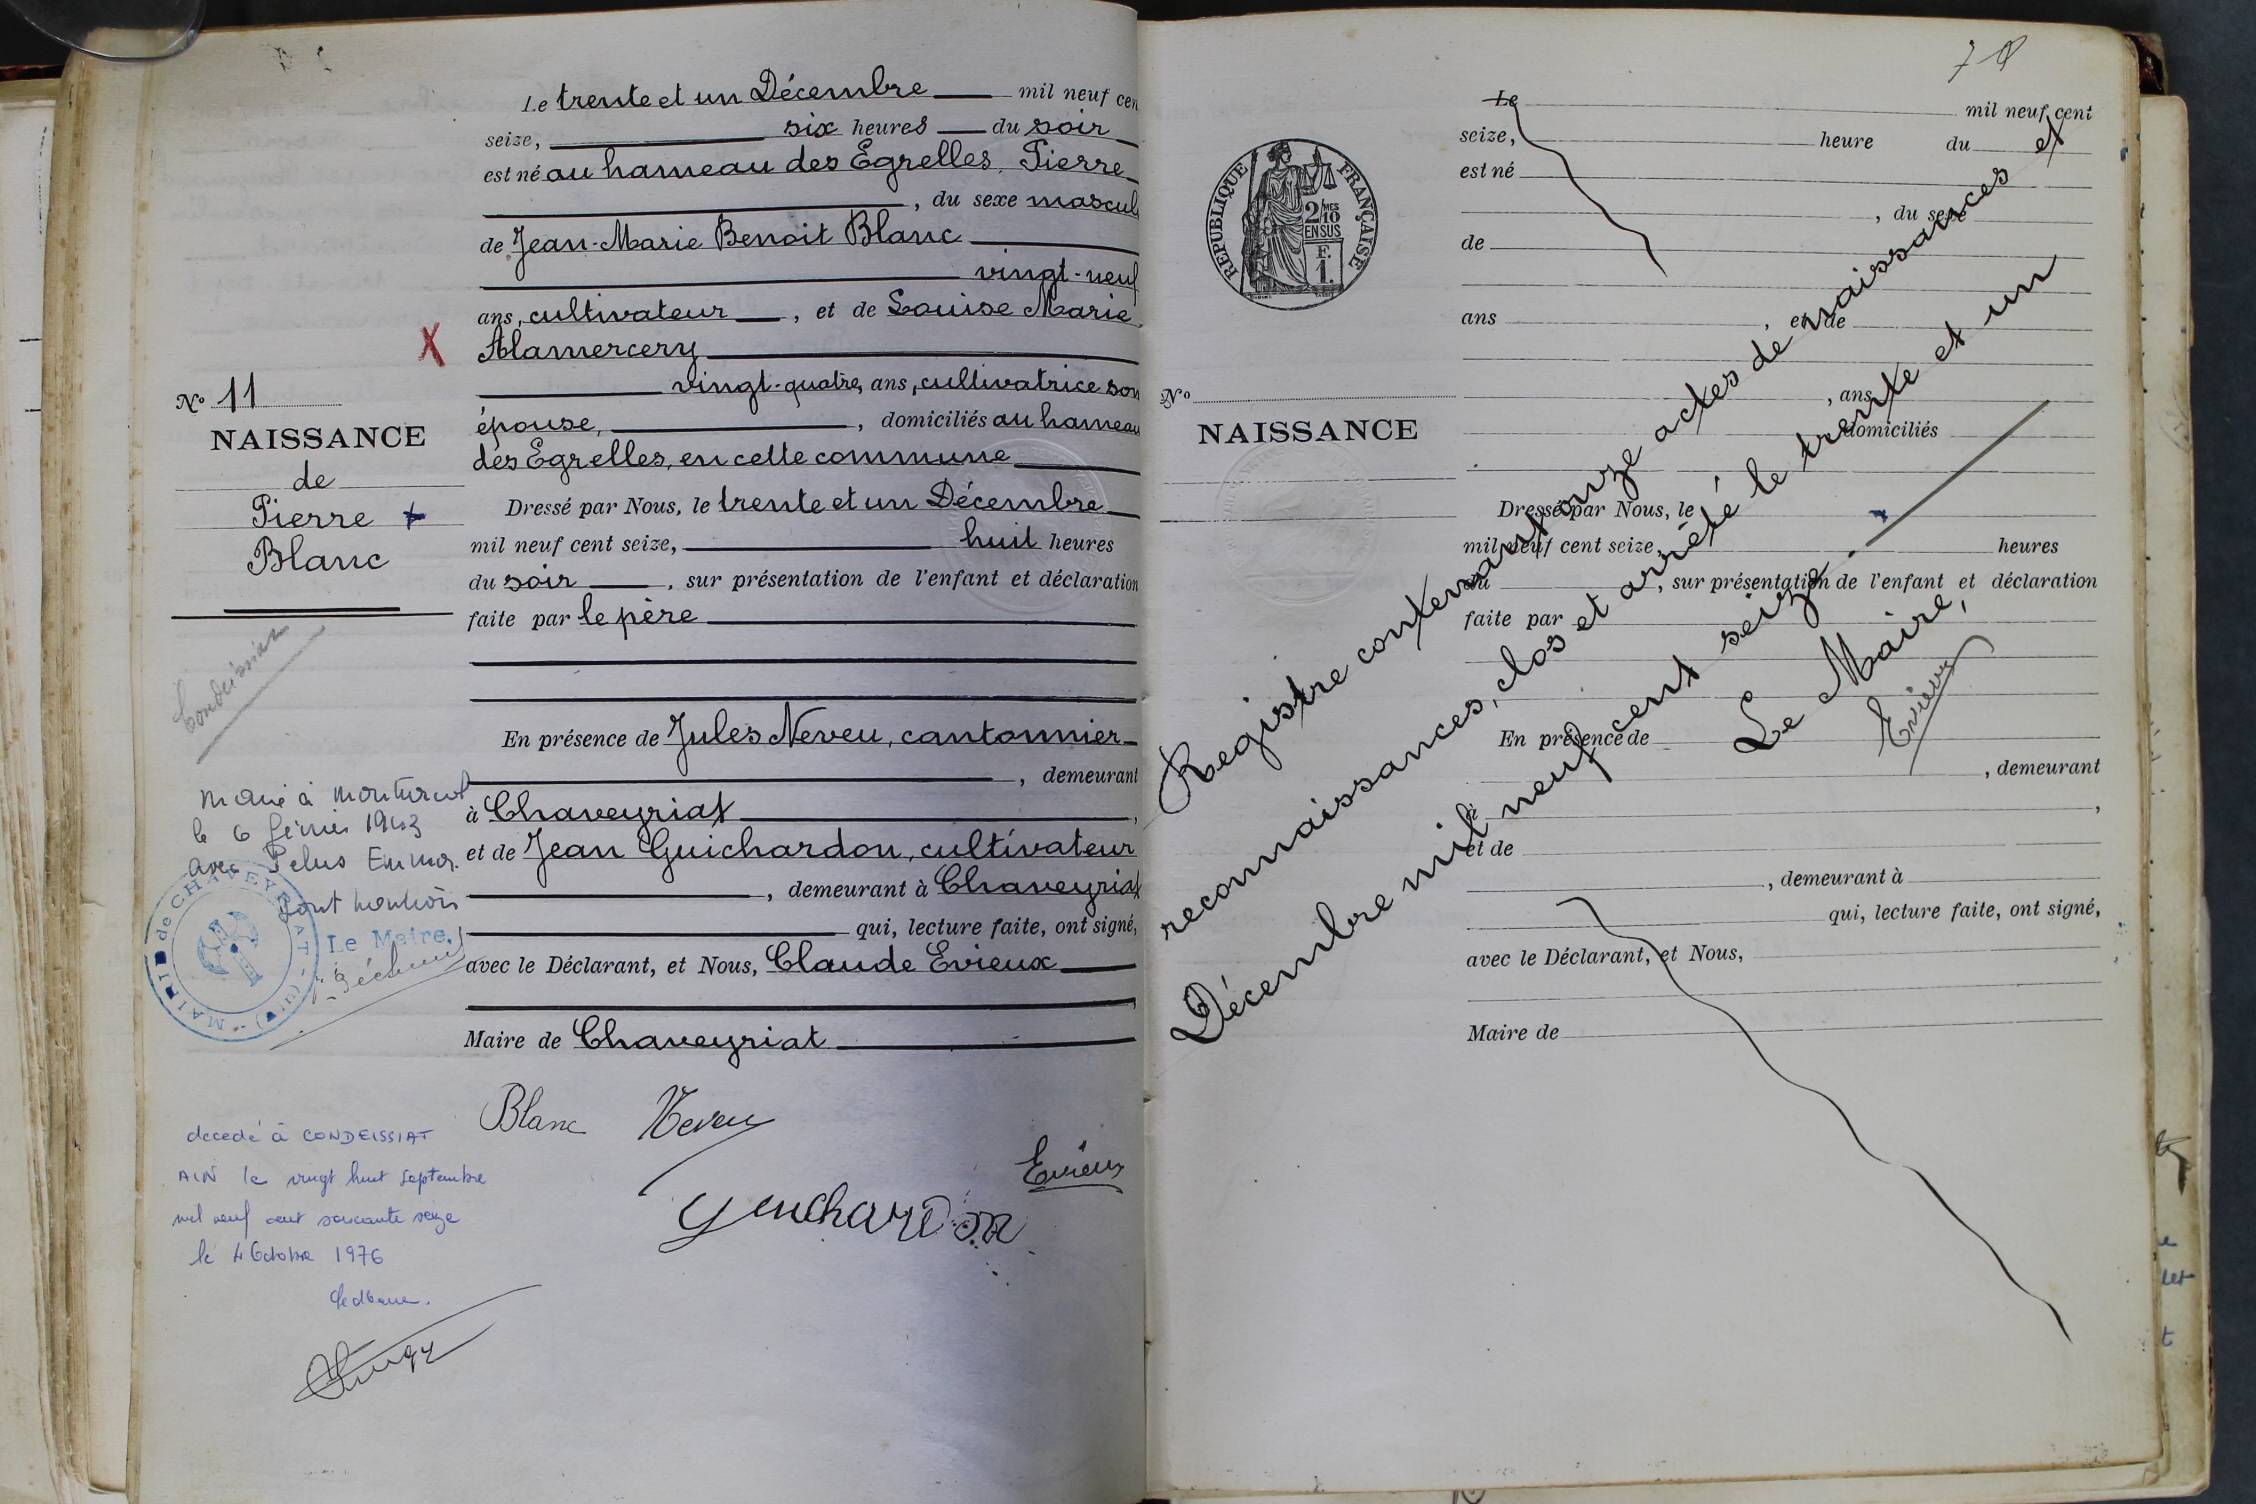 Le trente et un Décembre mil neuf cen
seize, six heures du soir
est né au hameau des Egrelles, Pierre
, du sexe mascul
de Jean-Marie Benoit Blanc
vingt-neuf
ans, cultivateur, et de Louise Marie
Alamercery
vingt-quatre ans, cultivatrice son
épouse, , domiciliés au hameau
des Egrelles, en cette commune
Dressé par Nous, le trente et un Décembre
mil neuf cent seize, huit heures
du soir, sur présentation de l'enfant et déclaration
faite par le père
En présence de Jules Neveu, cantonnier
, demeurant
à Chaveyriat,
et de Jean Guichardon, cultivateur
, demeurant à Chaveyriat
qui, lecture faite, ont signé,
avec le Déclarant, et Nous, Claude Evieux
,
Maire de Chaveyriat
Blanc Neveu
Evieux
Guichardon
X
No 11
NAISSANCE
de
Pierre +
Blanc
Condeissiat
Marié à
le 6 février 1943
avec Pelus Emma
Le Maire,
MAIRIE de CHAVEYRIAT - (Ain) -
decedé à CONDEISSIAT
AIN le vingt huit septembre
mil neuf cent soixante seize
le 4 Octobre 1976
REPUBLIQUE FRANÇAISE
2/10 MES
EN SUS
F.
1.
No
NAISSANCE
Le mil neuf cent
seize, heure du
est né
, du sexe
de
ans , et de
, ans
domiciliés
Dressé par Nous, le
mil neuf cent seize, heures
du , sur présentation de l'enfant et déclaration
faite par
En présence de
, demeurant
à ,
et de
, demeurant à
qui, lecture faite, ont signé,
avec le Déclarant, et Nous,
Maire de
Registre contenant onze actes de naissances et
reconnaissances, clos et arrêté le trente et un
Décembre mil neuf cent seize.
Le Maire,
Evieux